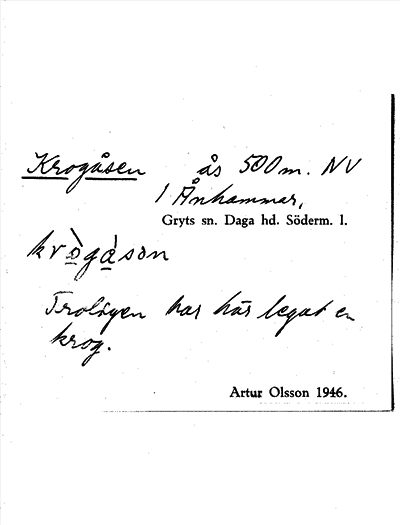 Krogåsen ås 500 m. NV
/ Ånhammar,
Gryts sn. Daga hd. Söderm. l.
kròg̀åsən
Troligen har här legat en
krog.
Artur Olsson 1946.